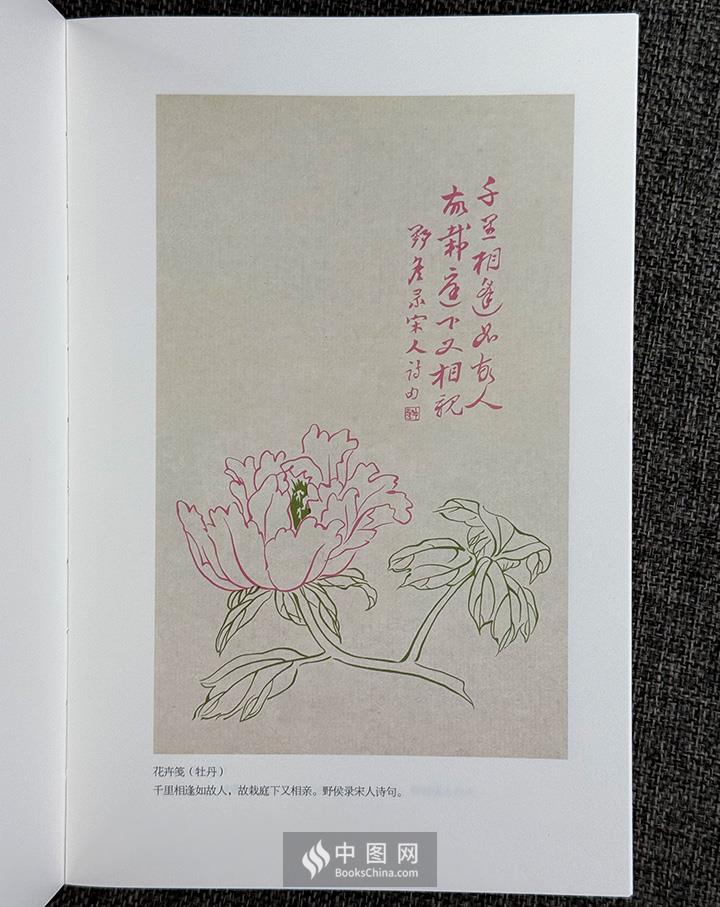 千里相逢如故人
故栽庭下又相親
野侯录宋人诗句
花卉笺（牡丹）
千里相逢如故人，故栽庭下又相亲。野侯录宋人诗句。
中图网
BooksChina.com